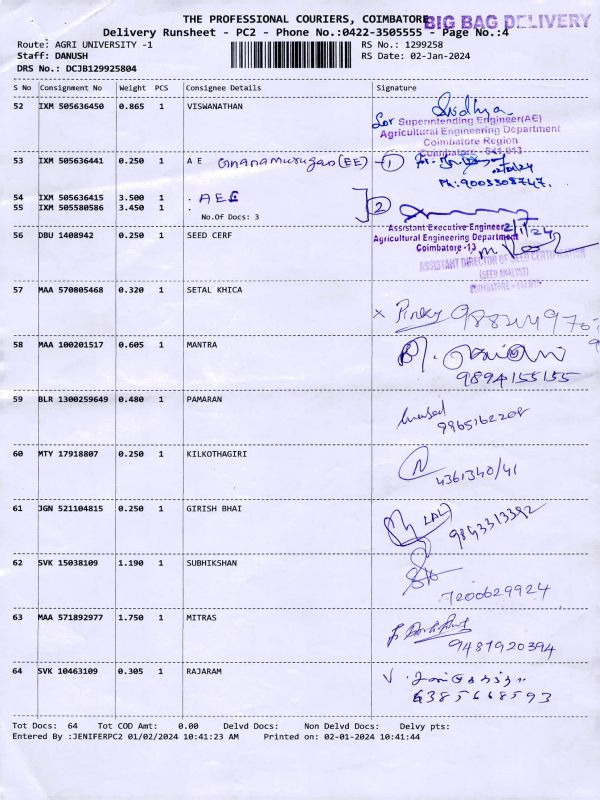 THE PROFESSIONAL COURIERS, COIMBATORE
BIG BAG DELIVERY
Delivery Runsheet - PC2 - Phone No.:0422-3505555 - Page No.:4
Route: AGRI UNIVERSITY -1 RS No.: 1299258
Staff: DANUSH RS Date: 02-Jan-2024
DRS No.: DCJB129925804
S No Consignment No Weight PCS Consignee Details Signature
52 IXM 505636450 0.865 1 VISWANATHAN
for Superintending Engineer(AE)
Agricultural Engineering Department
Coimbatore Region
Coimbatore - 641 013
53 IXM 505636441 0.250 1 A E Gnanamurugan (EE) - 1
02/01/24
Ph: 9003308747.
54 IXM 505636415 3.500 1 . AEE
55 IXM 505580586 3.450 1 . 2
No.Of Docs: 3
Assistant Executive Engineer 2/1/24
Agricultural Engineering Department
Coimbatore -13
56 DBU 1408942 0.250 1 SEED CERF
ASSISTANT DIRECTOR OF SEED CERTIFICATION
(SEED ANALYST)
57 MAA 570805468 0.320 1 SETAL KHICA
x Pinky
58 MAA 100201517 0.605 1 MANTRA
9894155155
59 BLR 1300259649 0.480 1 PAMARAN
9965162208
60 MTY 17918807 0.250 1 KILKOTHAGIRI
4361340/41
61 JGN 521104815 0.250 1 GIRISH BHAI
LAL
9843313392
62 SVK 15038109 1.190 1 SUBHIKSHAN
7200629924
63 MAA 571892977 1.750 1 MITRAS
9487920394
64 SVK 10463109 0.305 1 RAJARAM
6385668593
Tot Docs: 64 Tot COD Amt: 0.00 Delvd Docs: Non Delvd Docs: Delvy pts:
Entered By :JENIFERPC2 01/02/2024 10:41:23 AM Printed on: 02-01-2024 10:41:44